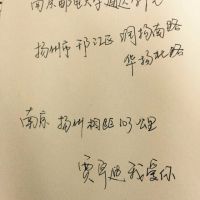 南京邮电大学通达学院
扬州市 邗江区 润扬南路
华扬北路
南京 扬州相距 103 公里
贾宇迪 我爱你